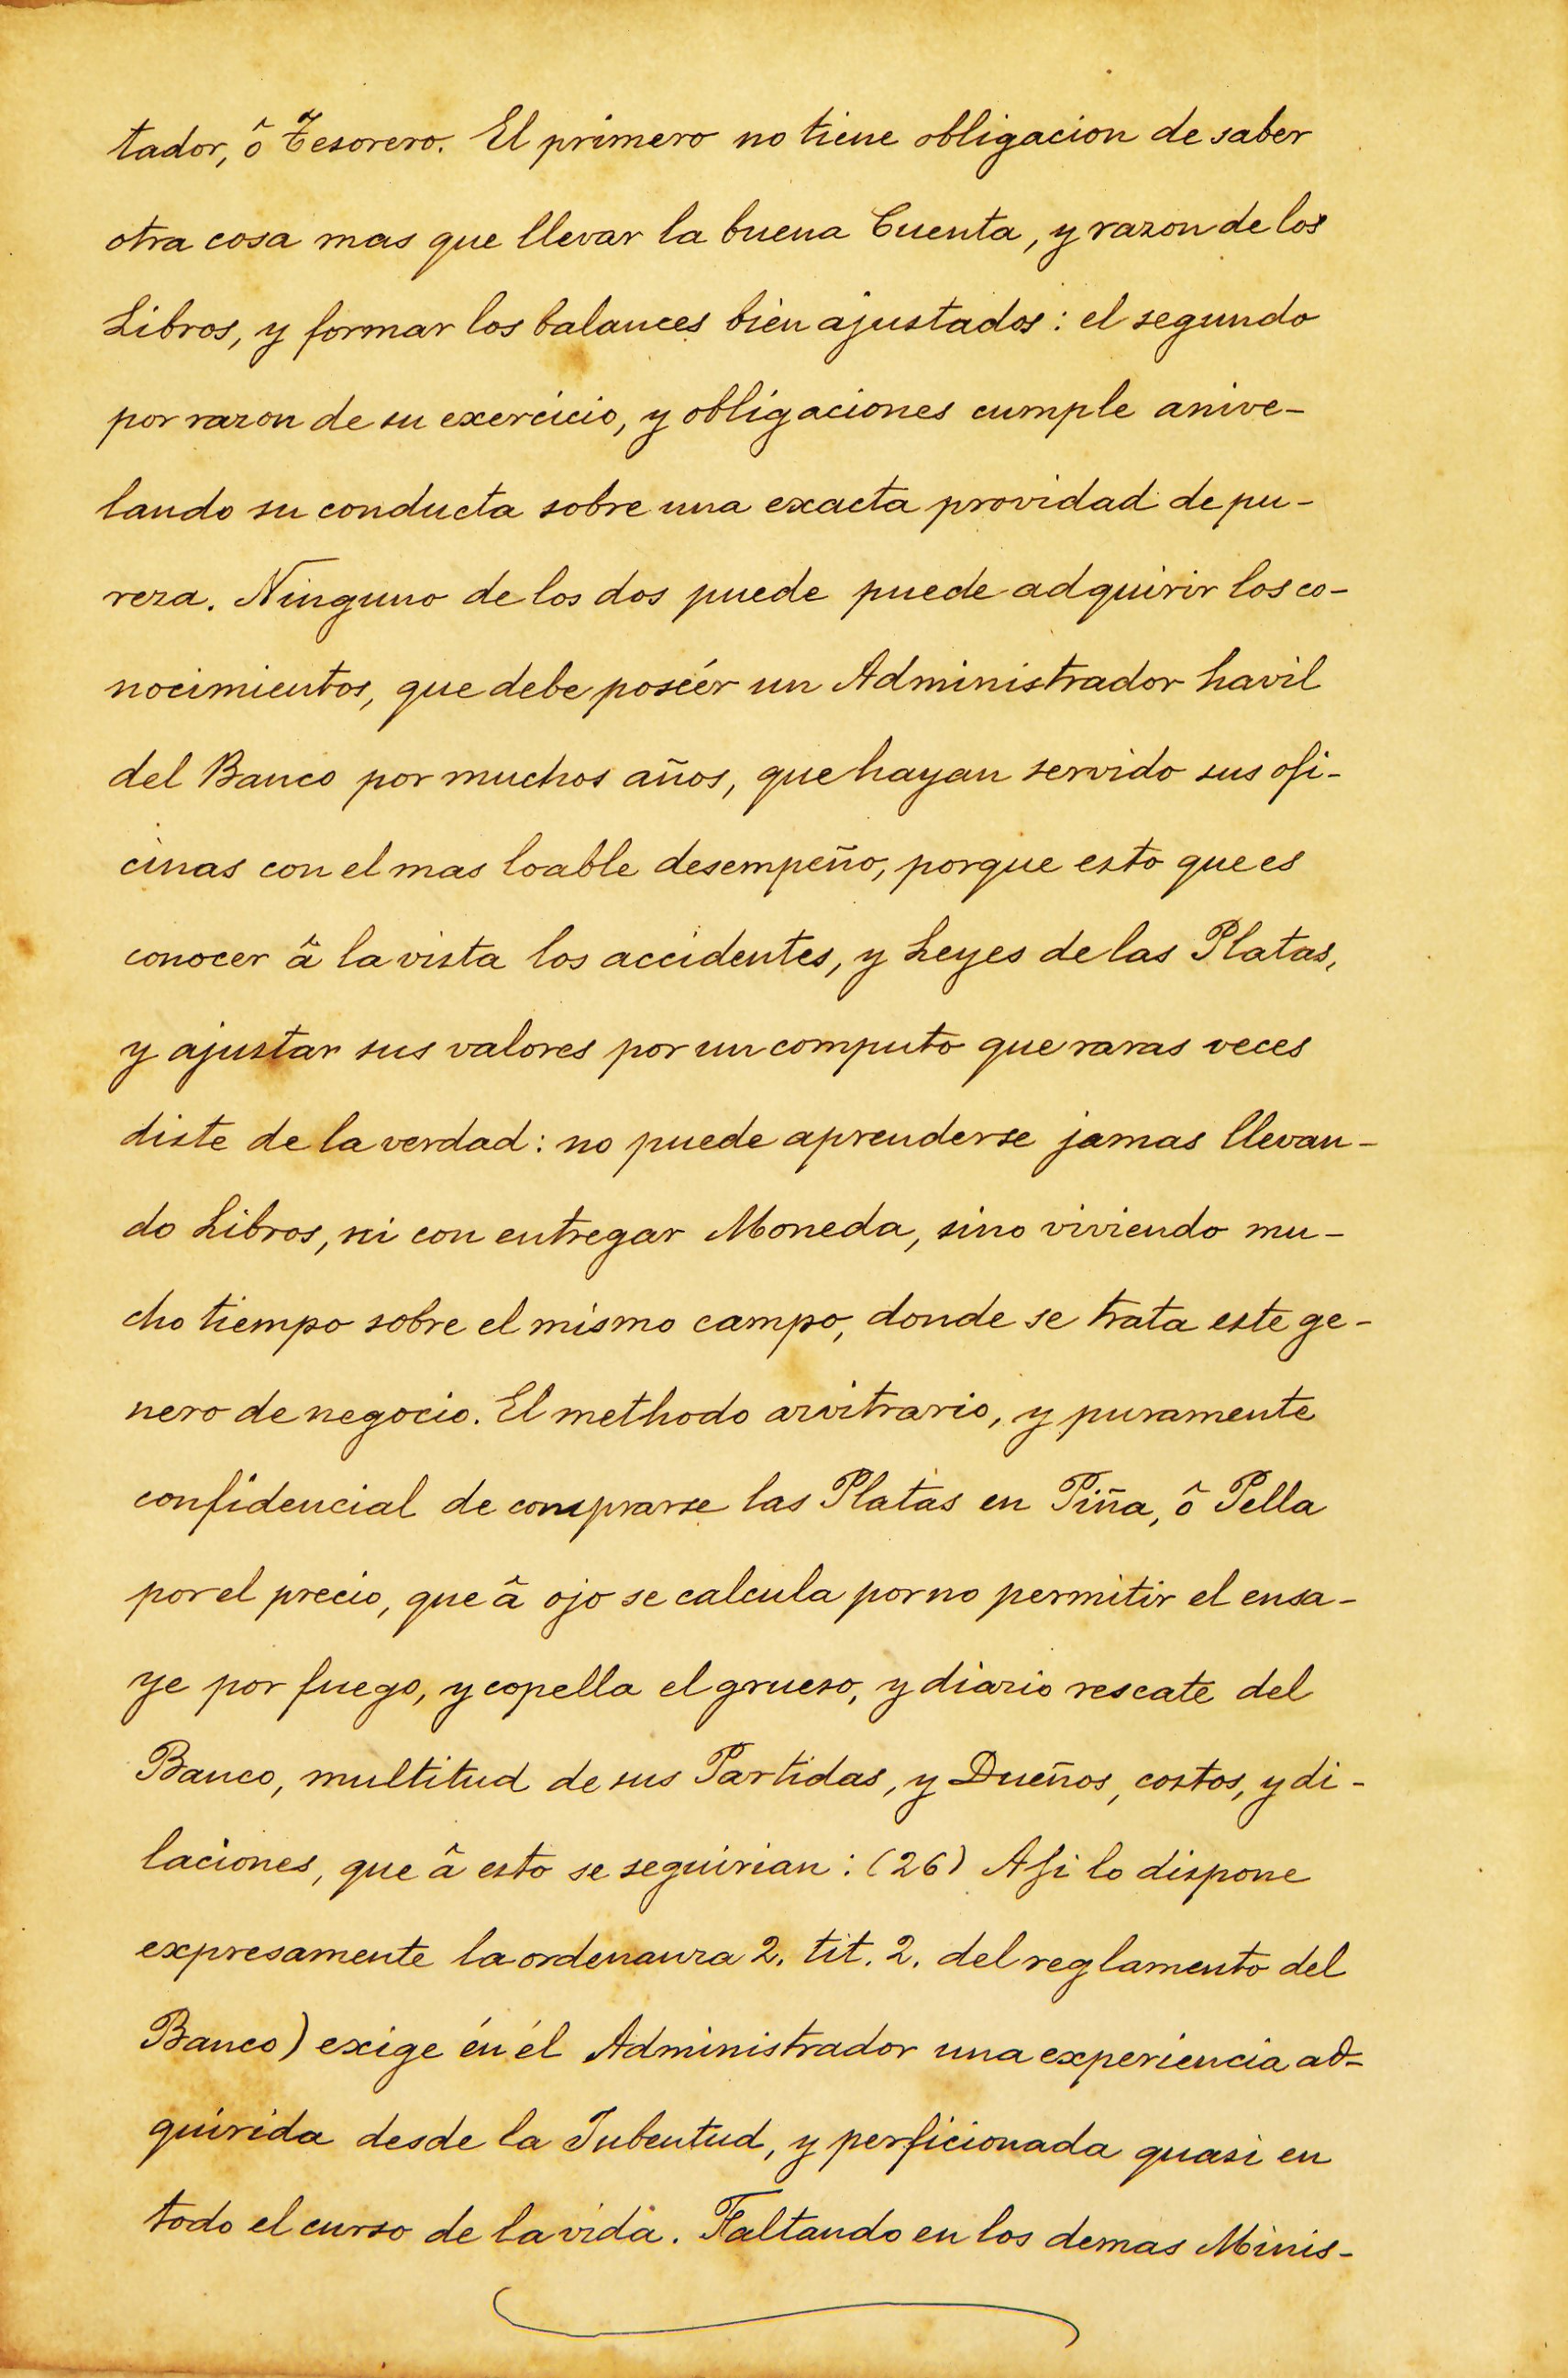 tador, ô Tesorero. El primero no tiene obligacion de saber
otra cosa mas que llevar la buena Cuenta, y razon de los
Libros, y formar los balances bien ajustados: el segundo
por razon de su exercicio, y obligaciones cumple anive-
lando su conducta sobre una exacta providad de pu-
reza. Ninguno de los dos puede puede adquirir los co-
nocimientos, que debe poséér un Administrador havil
del Banco por muchos años, que hayan servido sus ofi-
cinas con el mas loable desempeño, porque esto que es
conocer â la vista los accidentes, y Leyes de las Platas,
y ajustar sus valores por un computo que raras veces
diste de la verdad: no puede aprenderse jamas llevan-
do Libros, ni con entregar Moneda, sino viviendo mu-
cho tiempo sobre el mismo campo, donde se trata este ge-
nero de negocio. El methodo arvitrario, y puramente
confidencial de comprarse las Platas en Piña, ô Pella
por el precio, que â ojo se calcula por no permitir el ensa-
ye por fuego, y copella el grueso, y diario rescate del
Banco, multitud de sus Partidas, y Dueños, costos, y di-
laciones, que â esto se seguirian: (26) Asi lo dispone
expresamente la ordenanza 2. tit. 2. del reglamento del
Banco) exige én él Administrador una experiencia ad=
quirida desde la Jubentud, y perficionada quasi en
todo el curso de la vida. Faltando en los demas Minis-